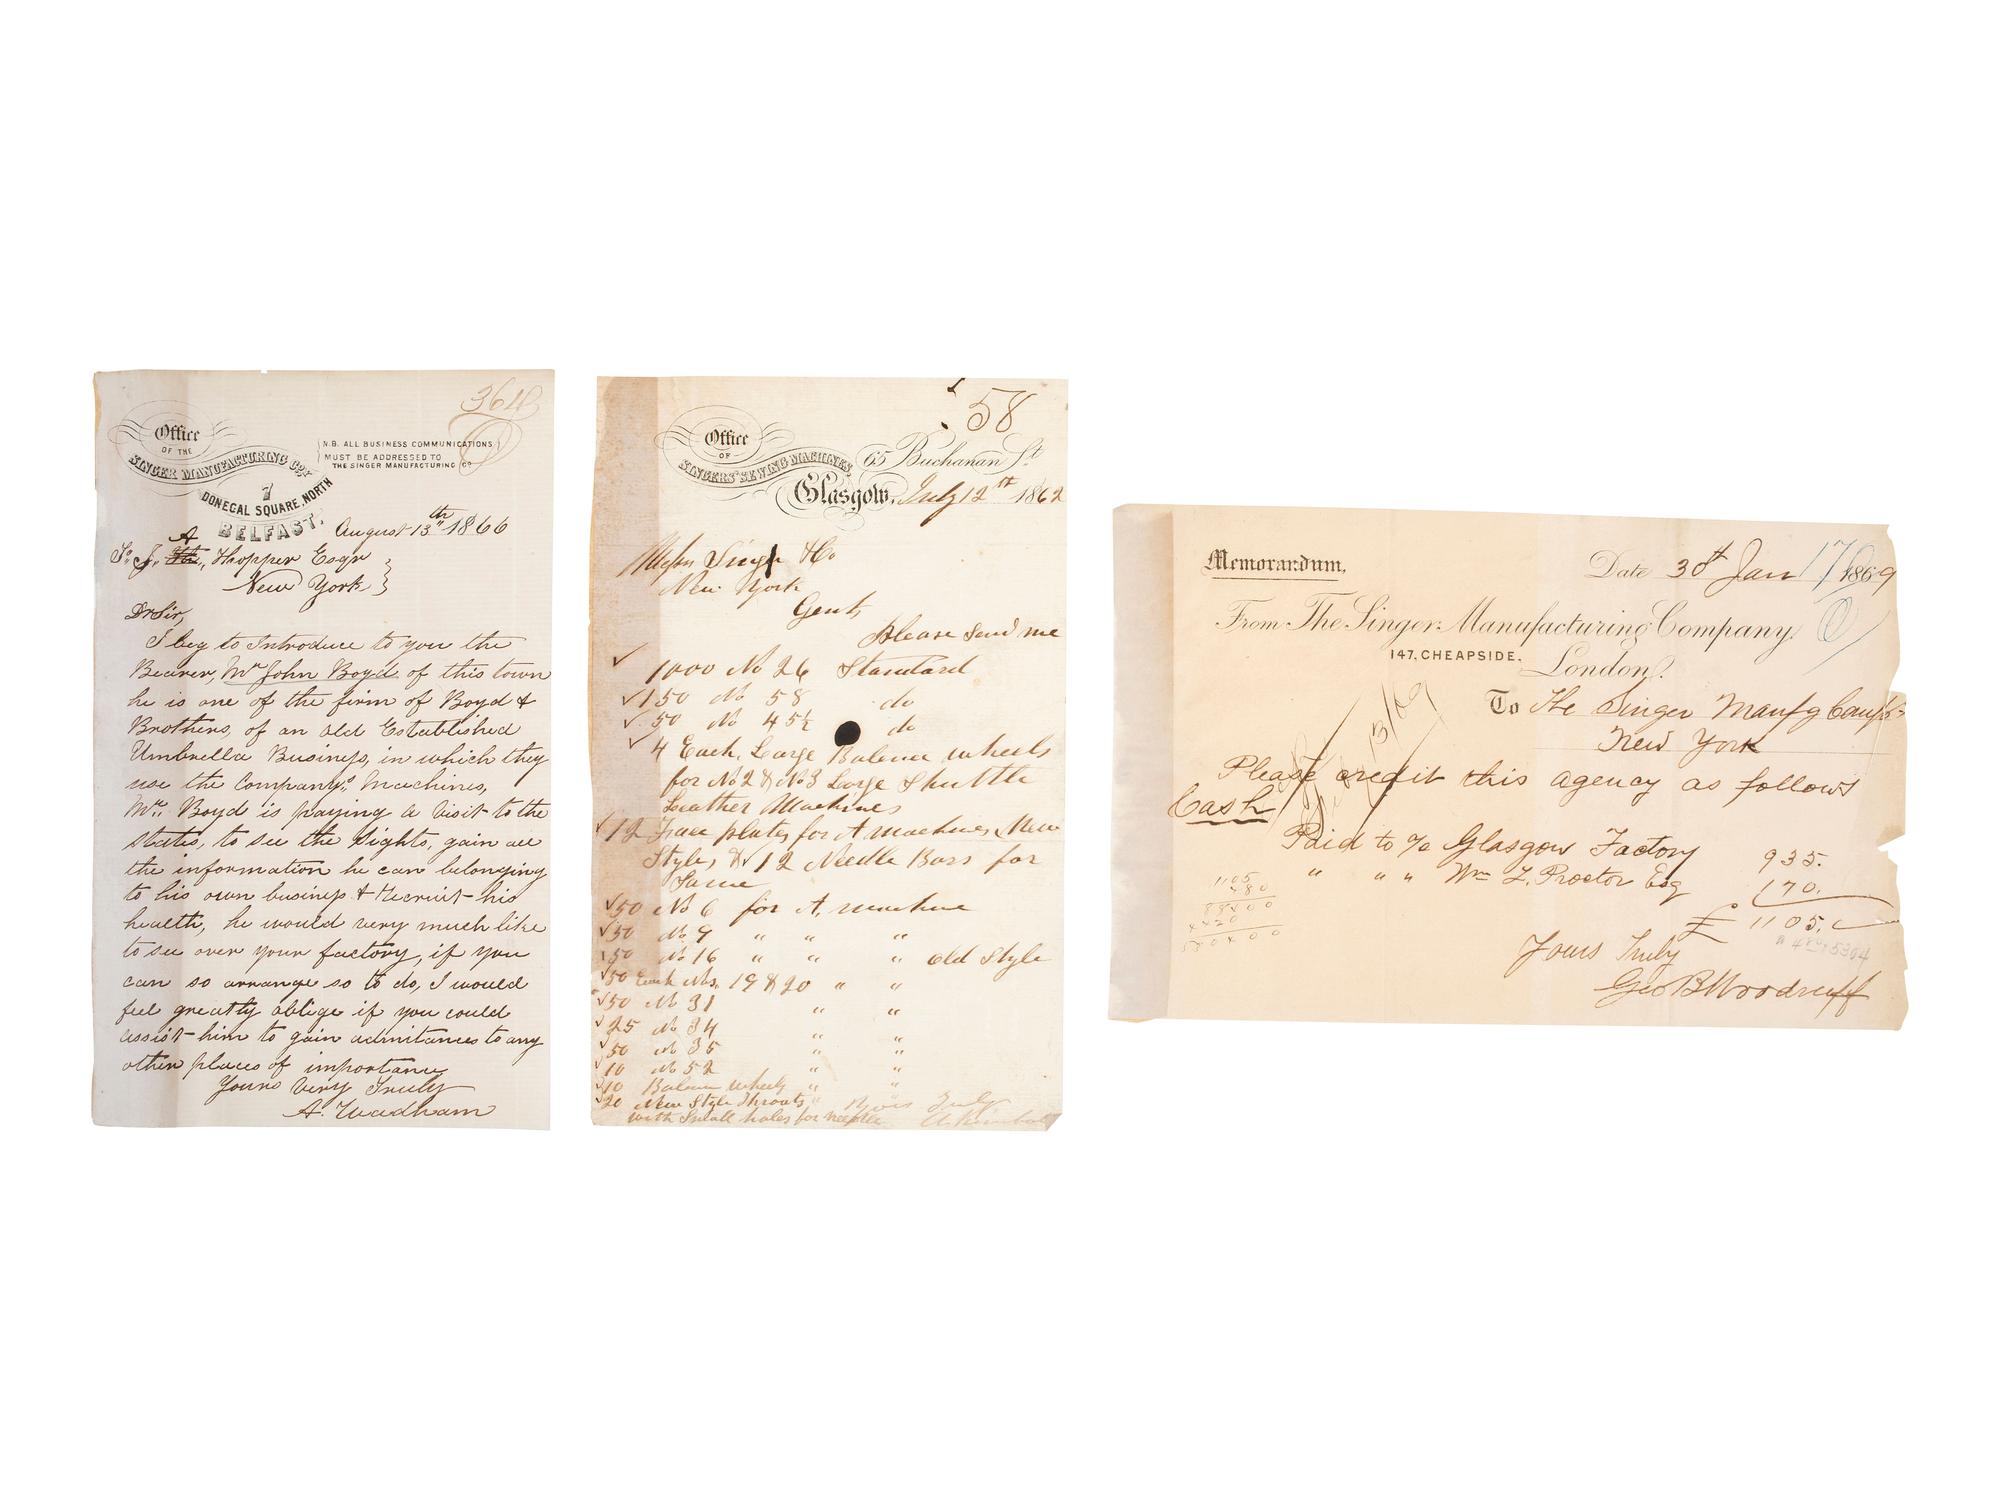 364
Office
OF THE
SINGER MANUFACTURING Coy.
7
DONEGAL SQUARE, NORTH
BELFAST.
N.B. ALL BUSINESS COMMUNICATIONS
MUST BE ADDRESSED TO
THE SINGER MANUFACTURING Co
August 13th 1866
A
Hopper Esqr
New York
Dr Sir,
I beg to Introduce to you the
Bearer, Mr John Boyd of this town
he is one of the firm of Boyd &
Brothers, of an old Established
Umbrella Business, in which they
use the Company's Machines,
Mr. Boyd is paying a visit to the
States, to see the Sights, gain all
the information he can belonging
to his own business & Recruit his
health, he would very much like
to see over your factory, if you
can so arrange so to do, I would
feel greatly oblige if you could
assist him to gain admittance to any
other places of importance
Yours Very Truly
A. Wadham
58
Office
OF
SINGERS' SEWING MACHINES,
65 Buchanan St.
Glasgow, July 12th 1862
Singer & Co
New York
Gents,
Please Send me
1000 No 26 Standard
150 No 58 do
50 No 45½ do
4 Each, Large Balance wheels
for No 2 & No 3 Large Shuttle
Leather Machines
12 Face plates for A machines New
Style, & 12 Needle Bars for
Same
50 No 6 for A, machine
50 No 9 " " "
50 No 16 " " " old Style
50 Each Nos. 19 & 20 " "
50 No 31 " "
25 No 34 " "
50 No 35 " "
10 No 52 " "
10 Balance wheels " "
20 New Style Throats "
with Small holes for needle
Yours Truly
A. Kimball
Memorandum.
Date 30th Jan 1869
17
From The Singer Manufacturing Company,
147, CHEAPSIDE.
London.
To The Singer Manfg Comp
New York
Please credit this agency as follows
Cash
Paid to % Glasgow Factory 935.
" " " Wm F. Proctor Esq 170.
£ 1105.
1105
480
88400
4420
530400
Yours Truly
Geo B Woodruff